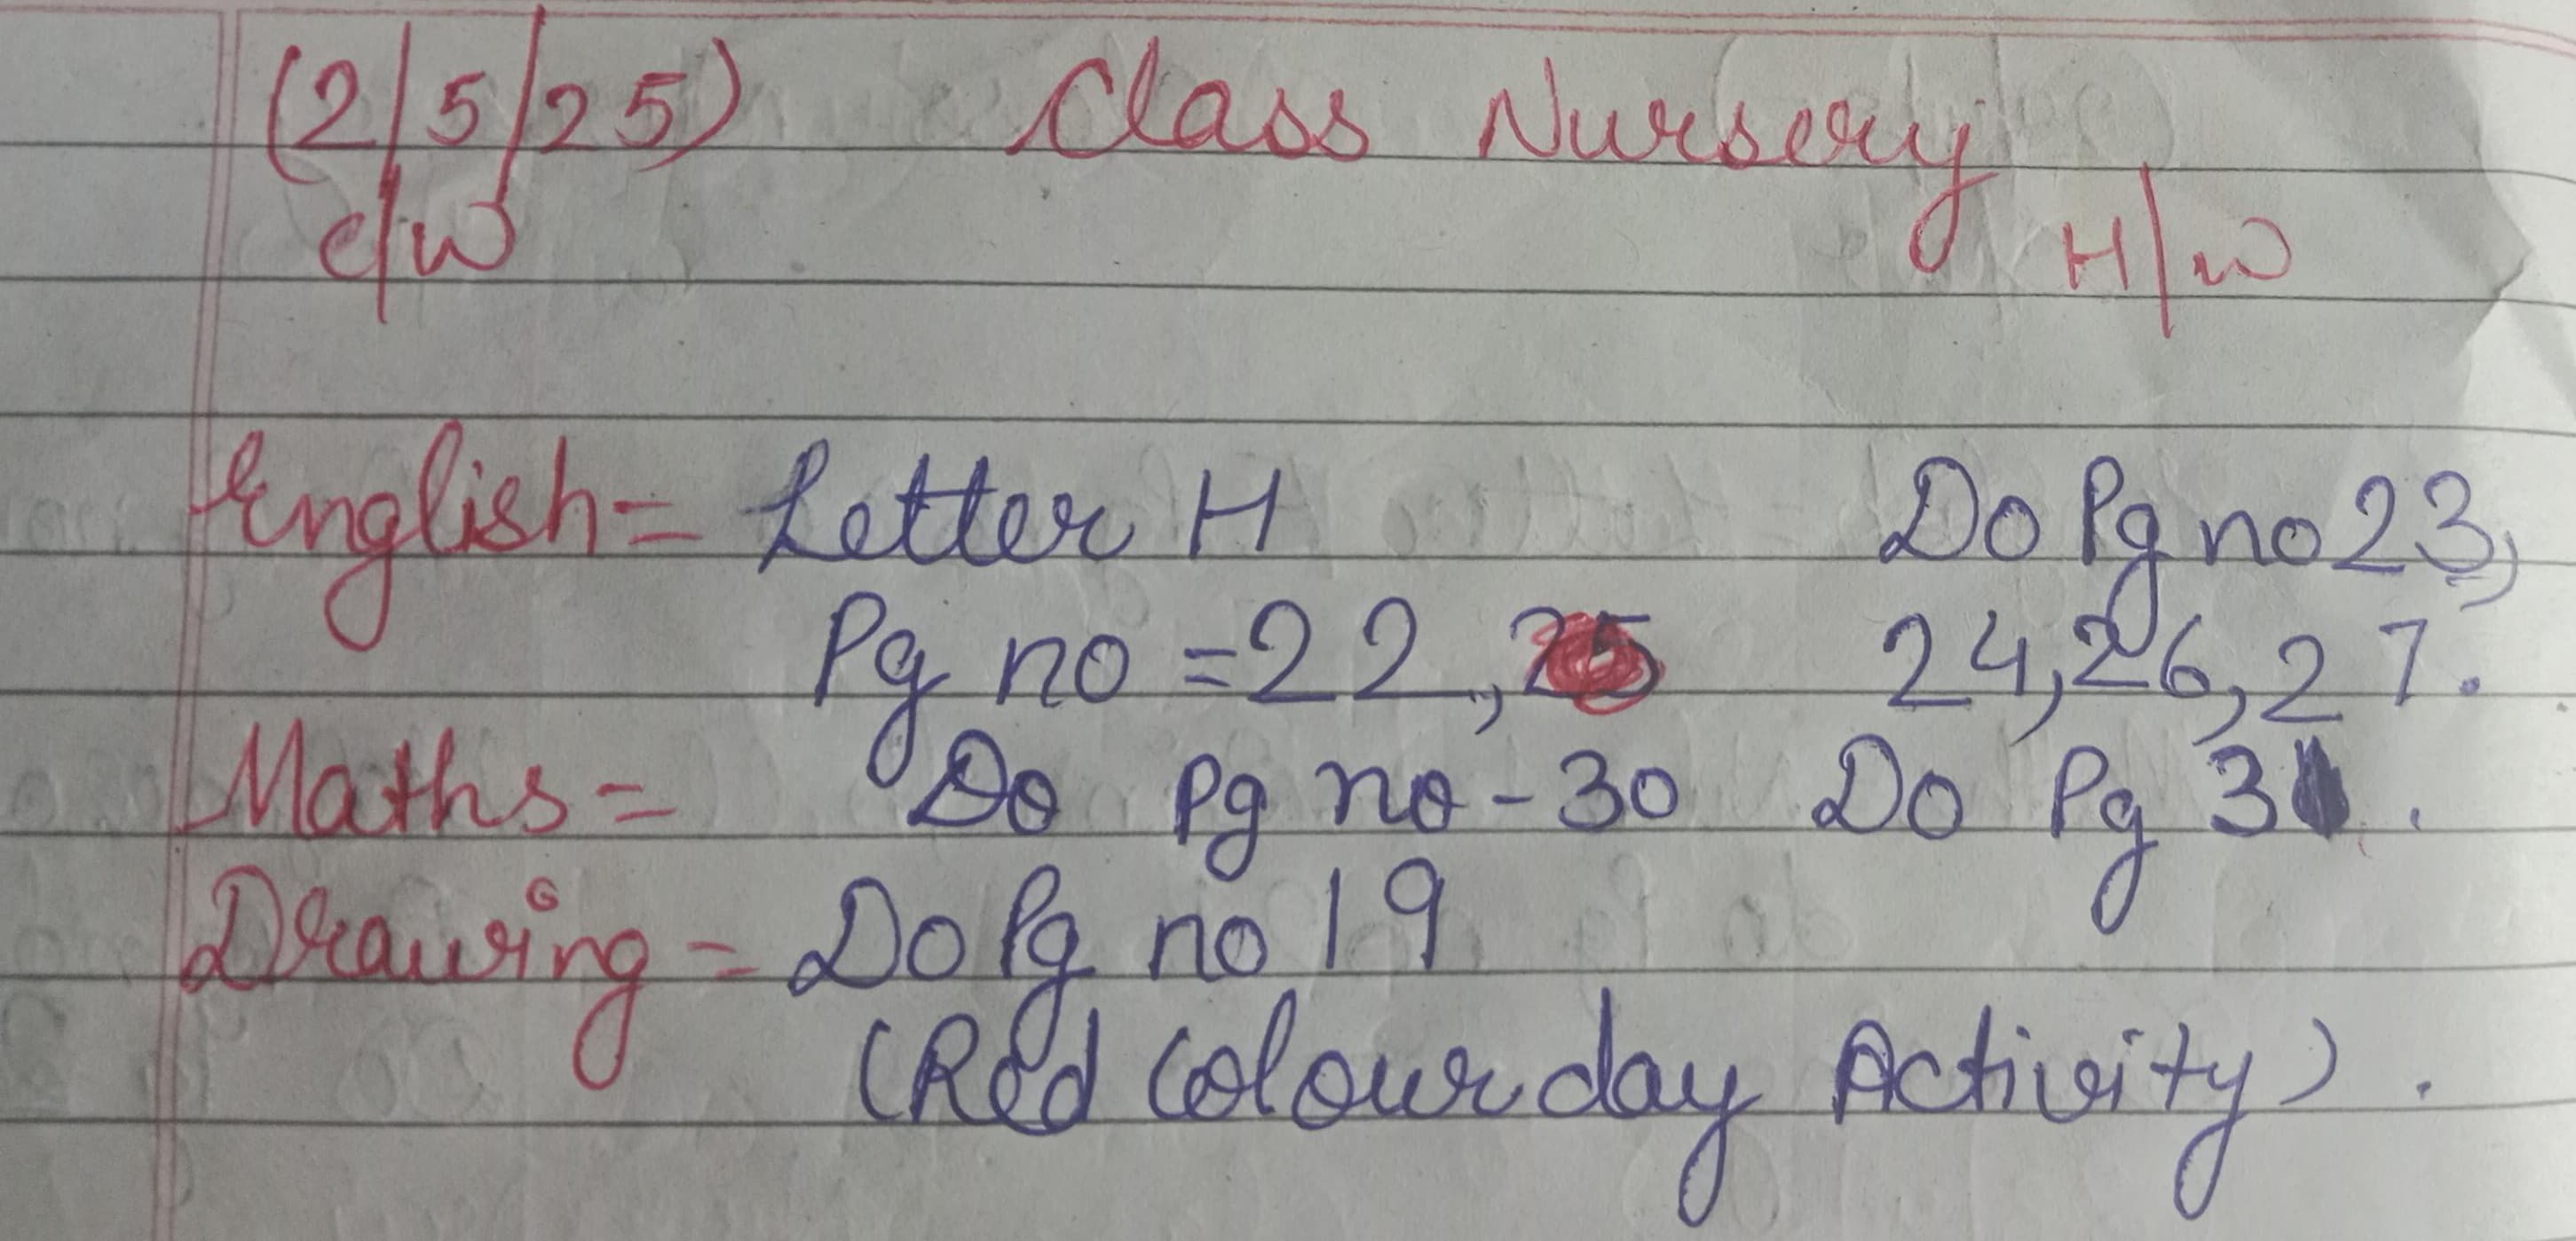 (2/5/25) Class Nursery
c/w H/w
English = Letter H Do Pg no 23,
Pg no = 22, 25 24, 26, 27.
Maths = Do Pg no - 30 Do Pg 31.
Drawing = Do Pg no 19
(Red Colour day Activity).